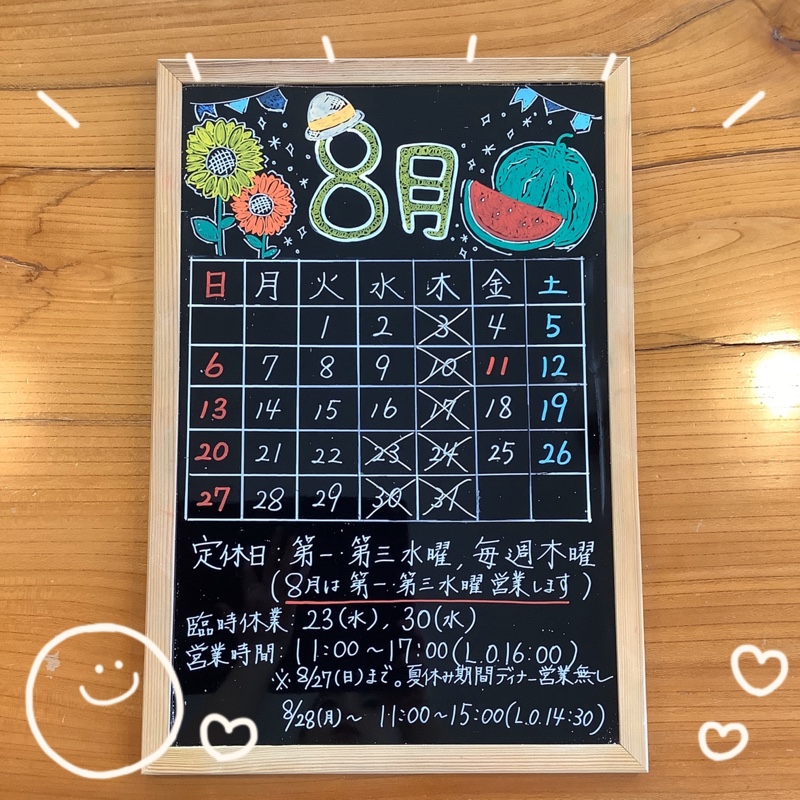 8月
日 月 火 水 木 金 土
1 2 3 4 5
6 7 8 9 10 11 12
13 14 15 16 17 18 19
20 21 22 23 24 25 26
27 28 29 30 31
定休日:第一・第三水曜,毎週木曜
(8月は第一・第三水曜営業します)
臨時休業:23(水),30(水)
営業時間:11:00~17:00(L.O.16:00)
※8/27(日)まで。夏休み期間ディナー営業無し
8/28(月)~ 11:00~15:00(L.O.14:30)